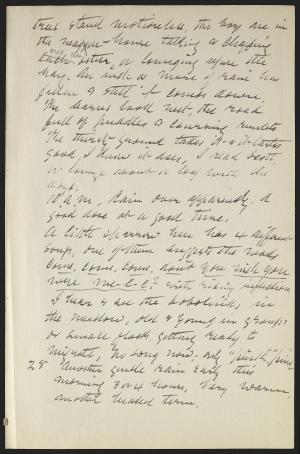 trees stand motionless, the boys are in
the waggon-house talking & chaffing
each other, or lounging upon the
hay. An inch or more of rain has
fallen & still it comes down.
The leaves look wet, the road
full of puddles & coursing runlets
The thirsty ground tastes it & it tastes
good, I know it does, I read some
or lounge about or lay with the
boys.
10 a.m. Rain over apparently, a
good dose at a good time.
A little sparrow here has 4 different
songs, one of them suggests the words
Come, come, come, don't you wish you
were me-e-e? with rising inflection
I hear & see the bobolinks, in
the meadow, old & young in groups
or small flocks getting ready to
migrate, no song now, only "
28" Another gentle rain early this
morning 3 or 4 hours, Very warm,
another heated term.